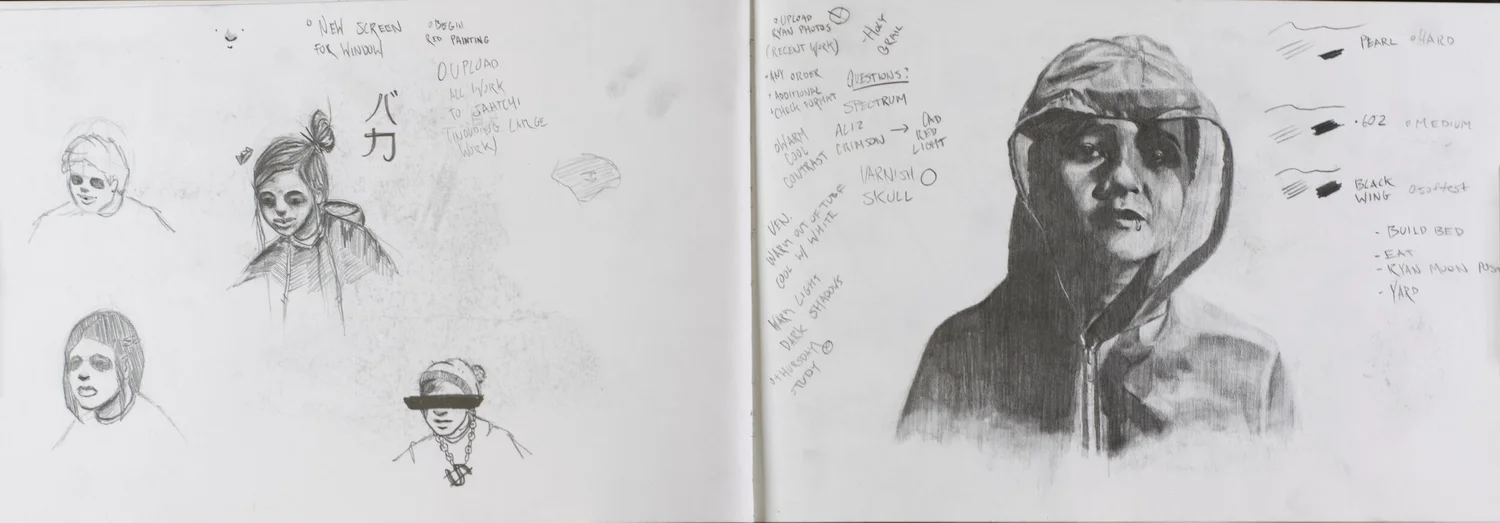 NEW SCREEN
FOR WINDOW
BEGIN
RED PAINTING
UPLOAD
ALL WORK
TO SAATCHI
LARGE
WORK)
バ
カ
UPLOAD
RYAN PHOTOS
(RECENT WORK)
-HOLY
GRAIL
-ANY ORDER
ADDITIONAL
CHECK FORMAT
QUESTIONS?
SPECTRUM
ALIZ
CRIMSON → CAD
RED
LIGHT
WARM
COOL
CONTRAST
VARNISH
SKULL
VEN.
WARM OUT OF TUBE
COOL W/ WHITE
WARM LIGHT
DARK SHADOWS
THURSDAY
STUDY
PEARL HARD
602 MEDIUM
BLACK
WING softest
- BUILD BED
- EAT
- RYAN MOON
- YARD